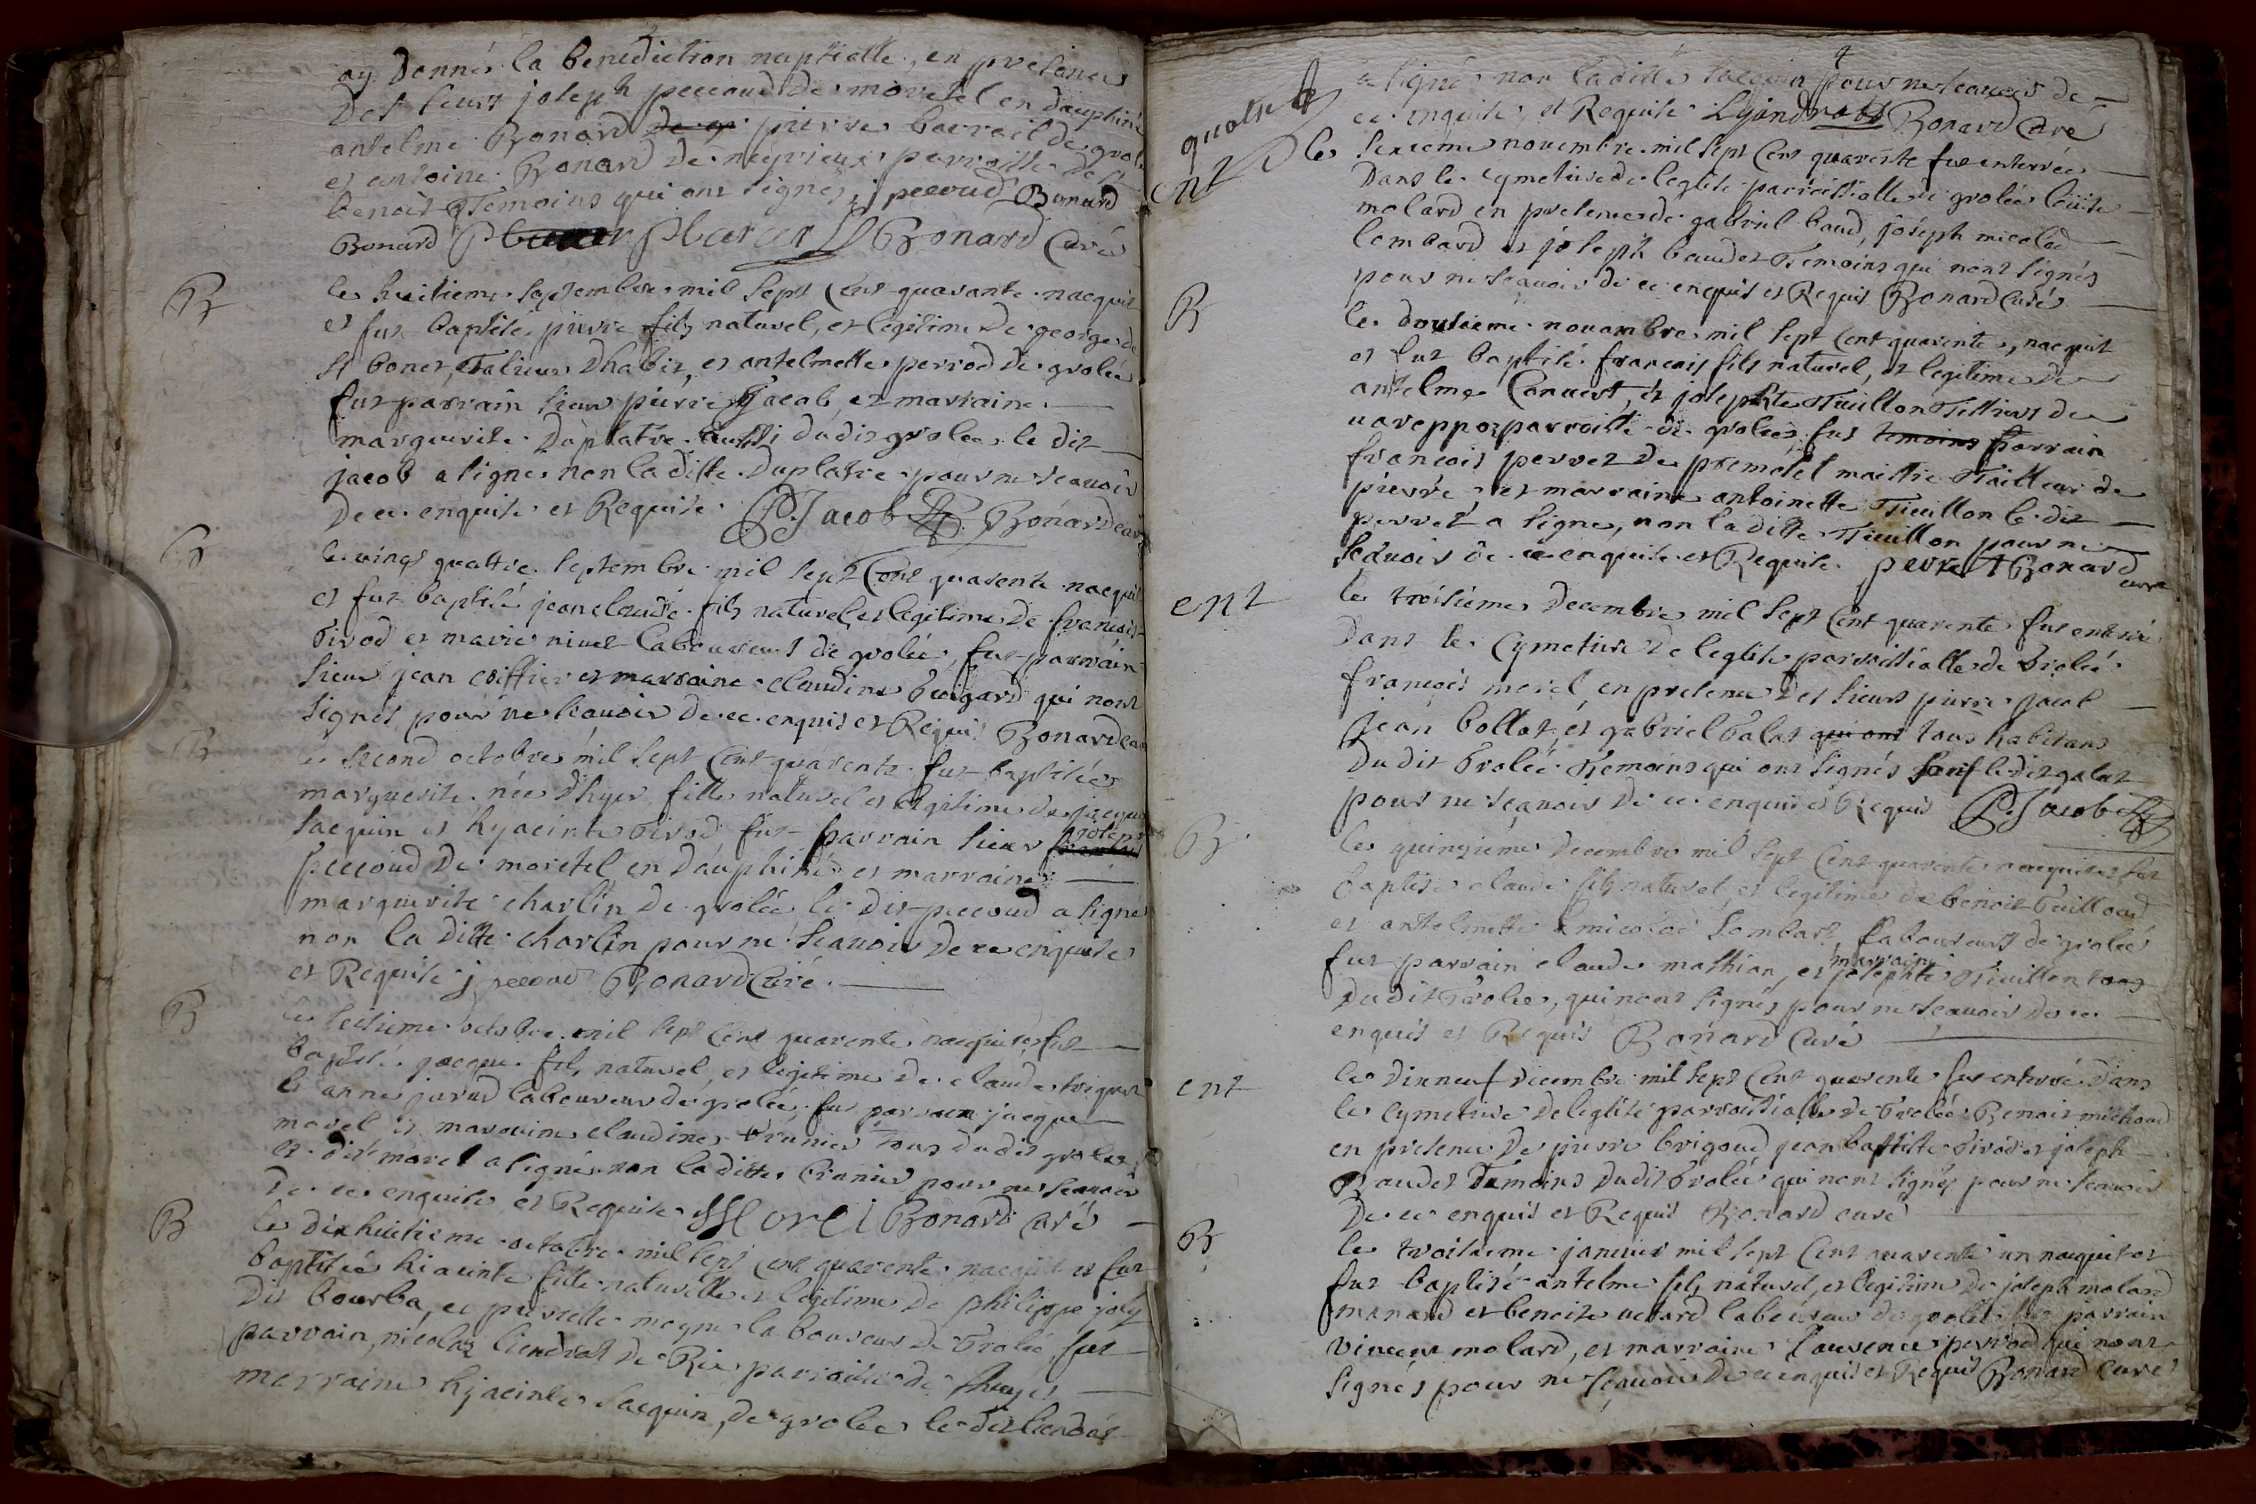 ay donnés la benediction nuptialle, en presences
des sieurs joseph peccoud de morestel en dauphiné
antelme Bonard pierre barrail de grolé
et antoine Bonard de neyrieux parroisse de St
benoit Temoins qui ont signés j peccoud Bonard
Bonard Bonard Curé
B
le huitieme septembre mil sept cent quarante nacquit
et fut baptisé pierre fils naturel, et legitime de george de
St bonet, Talieur dhabit, et antelmette perrod de grolée
fut parrain sieur pierre Jacob, et marraine
marguerite Duplatre aussi dudit grolée le dit
jacob a signé non la ditte Duplatre pour ne scavoir
de ce enquise et Requise P. Jacob Bonard curé
B
le vingt quattre septembre mil sept Cent quarente nacquit
et fut baptisé jean claude fils naturel et legitime de francois
Tirod et marie nivet laboureurs de grolée, fut parrain
sieur jean coiffier et marraine claudine brigard qui nont
signés pour ne scavoir de ce enquis et Requis Bonard curé
B
le second octobre mil sept Cent quarente fut baptisée
marguerite née dhyer fille naturel et legitime de jacque
sacquin et hyacinte Tirod fut parrain sieur joseph
peccoud de morestel en dauphiné et marraine
marguerite charlin de grolée le dit peccoud a signé
non la ditte charlin pour ne scavoir de ce enquise
et Requise j peccoud Bonard Curé
B
le seisieme octobre mil sept Cent quarente nacquit et fut
baptisé jacque fils naturel, et legitime de claude
et anne jarud laboureur de grolée, fut parrain jacque
morel et marraine claudine brunier tous dudit grolée
le dit morel a signé non la ditte brunier pour ne scavoir
de ce enquise et Requise Morel Bonard Curé
B
le dixhuitieme octobre mil sept Cent quarente nacquit et fut
baptisée hiacinte fille naturelle et legitime de philippe joly
dit bourba, et pierrette moyne laboureur de Grolée, fut
parrain, nicolas liendrat de Rix parroisse de
marraine hjacinte sacquin, de grolée le dit liendrat
4
quatre
a signé non la ditte sacquin pour ne scavoir de
ce enquise, et Requise Lyandrat Bonard Curé
ent
le sixieme novembre mil sept Cent quarente fut enterrée
dans le cymetiere de leglise parroissialle de grolée louise
molard en presence de gabriel baud, joseph micolod
lombard et joseph baudet Temoins qui nont signés
pour ne scavoir de ce enquis et Requis Bonard Curé
B
le douzieme novambre mil sept Cent quarente, nacquit
et fut baptisé francois fils naturel, et legitime de
antelme Convert, et josephte Tuillon Tissiers de
vareppoz parroisse de grolée fut temoins parrain
francois perret de premesel maistre Tailleur de
pierre et marraine antoinette Tuillon le dit
perret a signé, non la ditte Tuillon pour ne
scavoir de ce enquise et Requise perret Bonard
curé
ent
le troisieme decembre mil sept Cent quarente fut enterré
dans le cymetiere de leglise parroissialle de Grolée
françois morel, en presence des sieurs pierre jacob
Jean bollot, et gabriel Galat qui ont tous habitans
du dit Grolée Temoins qui ont signés sauf le dit galat
pour ne sçavoir de ce enquis et Requis P. Jacob
B
le quinzieme decembre mil sept Cent quarente nacquit et fut
baptisé claude fils naturel, et legitime de benoit
et antelmette micolod lombard, laboureurs de grolée
fut parrain claude mathian, et marraine josephte Tuillon tous
dudit Grolée, qui nont signés pour ne scavoir de ce
enquis et Requis Bonard Curé
ent
le dixneuf decembre mil sept Cent quarente fut enterré dans
le cymetiere de leglise parroissialle de Grolée Benoit michoud
en presence de pierre brigoud jean baptiste Tirod et joseph
Baudet Temoins dudit Grolée qui nont signés pour ne scavoir
de ce enquis et Requis Bonard curé
B
le troisieme janvier mil sept Cent quarente un nacquit et
fut baptisé antelme fils naturel, et legitime de joseph molard
manard et benoite laboureur de grolée fut parrain
vincent molard, et marraine laurence perrod qui nont
signés pour ne sçavoir de ce enquis et Requis Bonard Curé